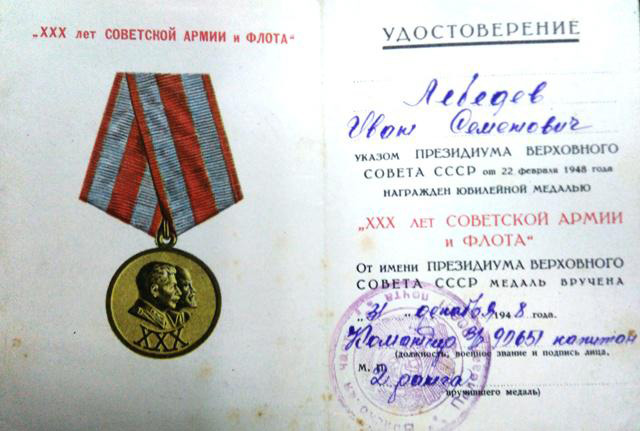 „XXX лет СОВЕТСКОЙ АРМИИ и ФЛОТА“
XXX
УДОСТОВЕРЕНИЕ
Лебедев
Иван Семенович
УКАЗОМ ПРЕЗИДИУМА ВЕРХОВНОГО
СОВЕТА СССР от 22 февраля 1948 года
НАГРАЖДЕН ЮБИЛЕЙНОЙ МЕДАЛЬЮ
„XXX ЛЕТ СОВЕТСКОЙ АРМИИ
и ФЛОТА“
От имени ПРЕЗИДИУМА ВЕРХОВНОГО
СОВЕТА СССР МЕДАЛЬ ВРУЧЕНА
„31 декабря 1948 года.
Командир в/ч 90651 капитан
(должность, военное звание и подпись лица,
М. П. 2 ранга
вручившего медаль)